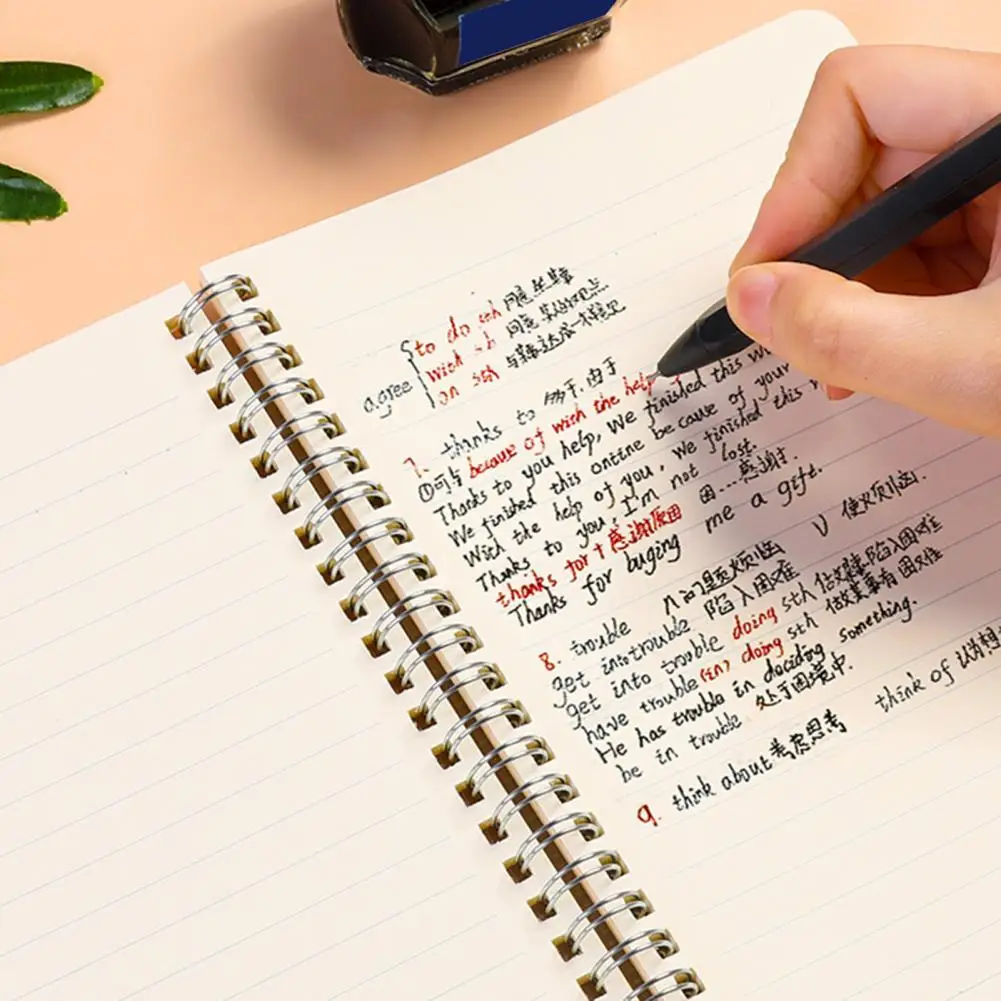 to do sth 同意做某事
agree with sb 同意某人的观点
on sth 与某某达成一样意见
7. thanks to 多亏.由于
①同与 because of with the help
Thanks to you help, We finished this w
We finished this ontine because of your
With the help of you, we finished this
Thanks to you, I'm not lost.
thanks for + 感谢原因 因...感谢.
Thanks for buging me a gift.
8. trouble n 问题烦恼 V 使烦恼.
get into trouble 陷入困难
get into trouble doing sth 做某事陷入困难
have trouble (in) doing sth 做某事有困难
He has trouble in deciding something.
be in trouble 处于困境中.
9. think about 考虑思考 think of 认为想